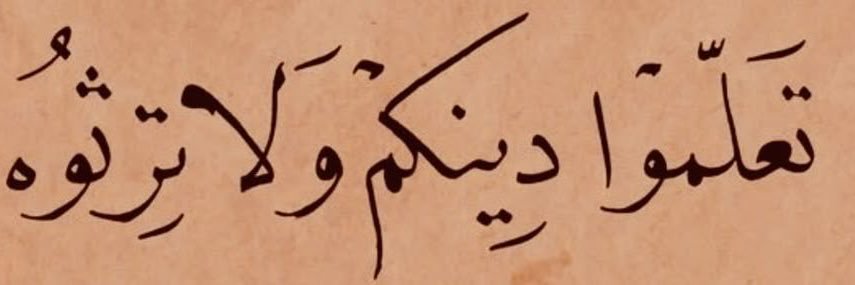 تَعَلَّموْا دِينكمْ وَلا تَرِثوُه